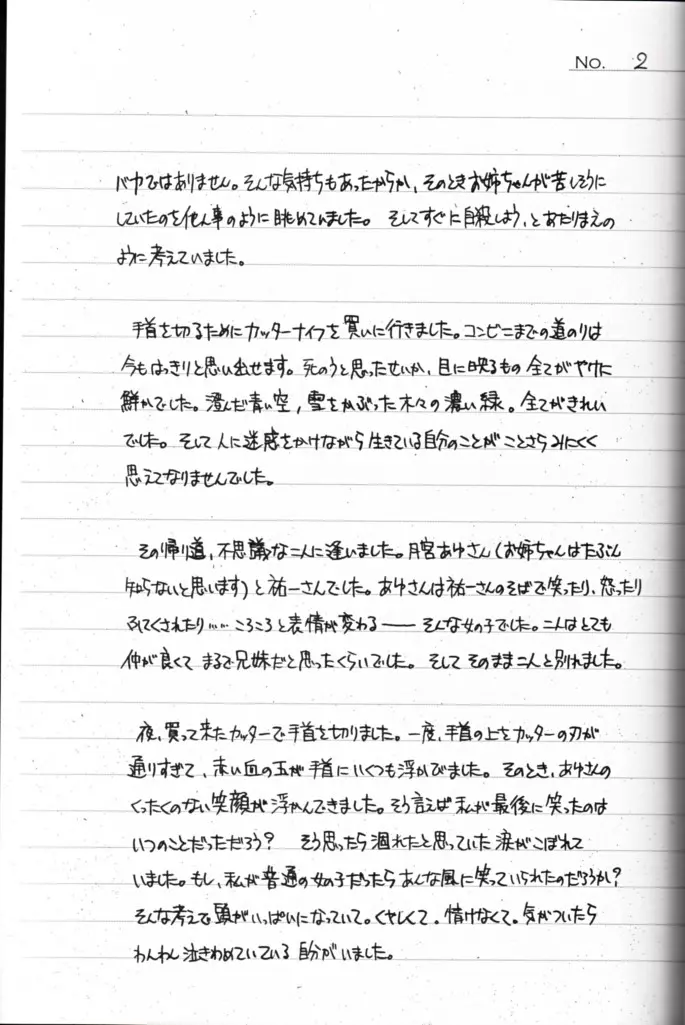 No. 2
バカではありません。そんな気持ちもあったからか、そのときお姉ちゃんが苦しそうに
していたのを他人事のように眺めていました。 そしてすぐに自殺しよう、とあたりまえの
ように考えていました。
手首を切るためにカッターナイフを買いに行きました。コンビニまでの道のりは
今もはっきりと思い出せます。死のうと思ったせいか、目に映るもの全てがやけに
鮮かでした。澄んだ青い空，雪をかぶった木々の濃い緑。全てがきれい
でした。そして人に迷惑をかけながら生きている自分のことがことさらみにくく
思えてなりませんでした。
その帰り道、不思議な二人に逢いました。月宮あゆさん(お姉ちゃんはたぶん
知らないと思います)と祐一さんでした。あゆさんは祐一さんのそばで笑ったり、怒ったり
ふてくされたり……ころころと表情が変わる――そんな女の子でした。二人はとても
仲が良くてまるで兄妹だと思ったくらいでした。そしてそのまま二人と別れました。
夜、買って来たカッターで手首を切りました。一度、手首の上をカッターの刃が
通りすぎて、赤い血の玉が手首にいくつも浮かびました。そのとき、あゆさんの
くったくのない笑顔が浮かんできました。そう言えば私が最後に笑ったのは
いつのことだっただろう? そう思ったら涸れたと思っていた涙がこぼれて
いました。もし、私が普通の女の子だったらあんな風に笑っていられたのだろうか?
そんな考えで頭がいっぱいになっていて。くやしくて。情けなくて。気がついたら
わんわん泣きわめいている自分がいました。